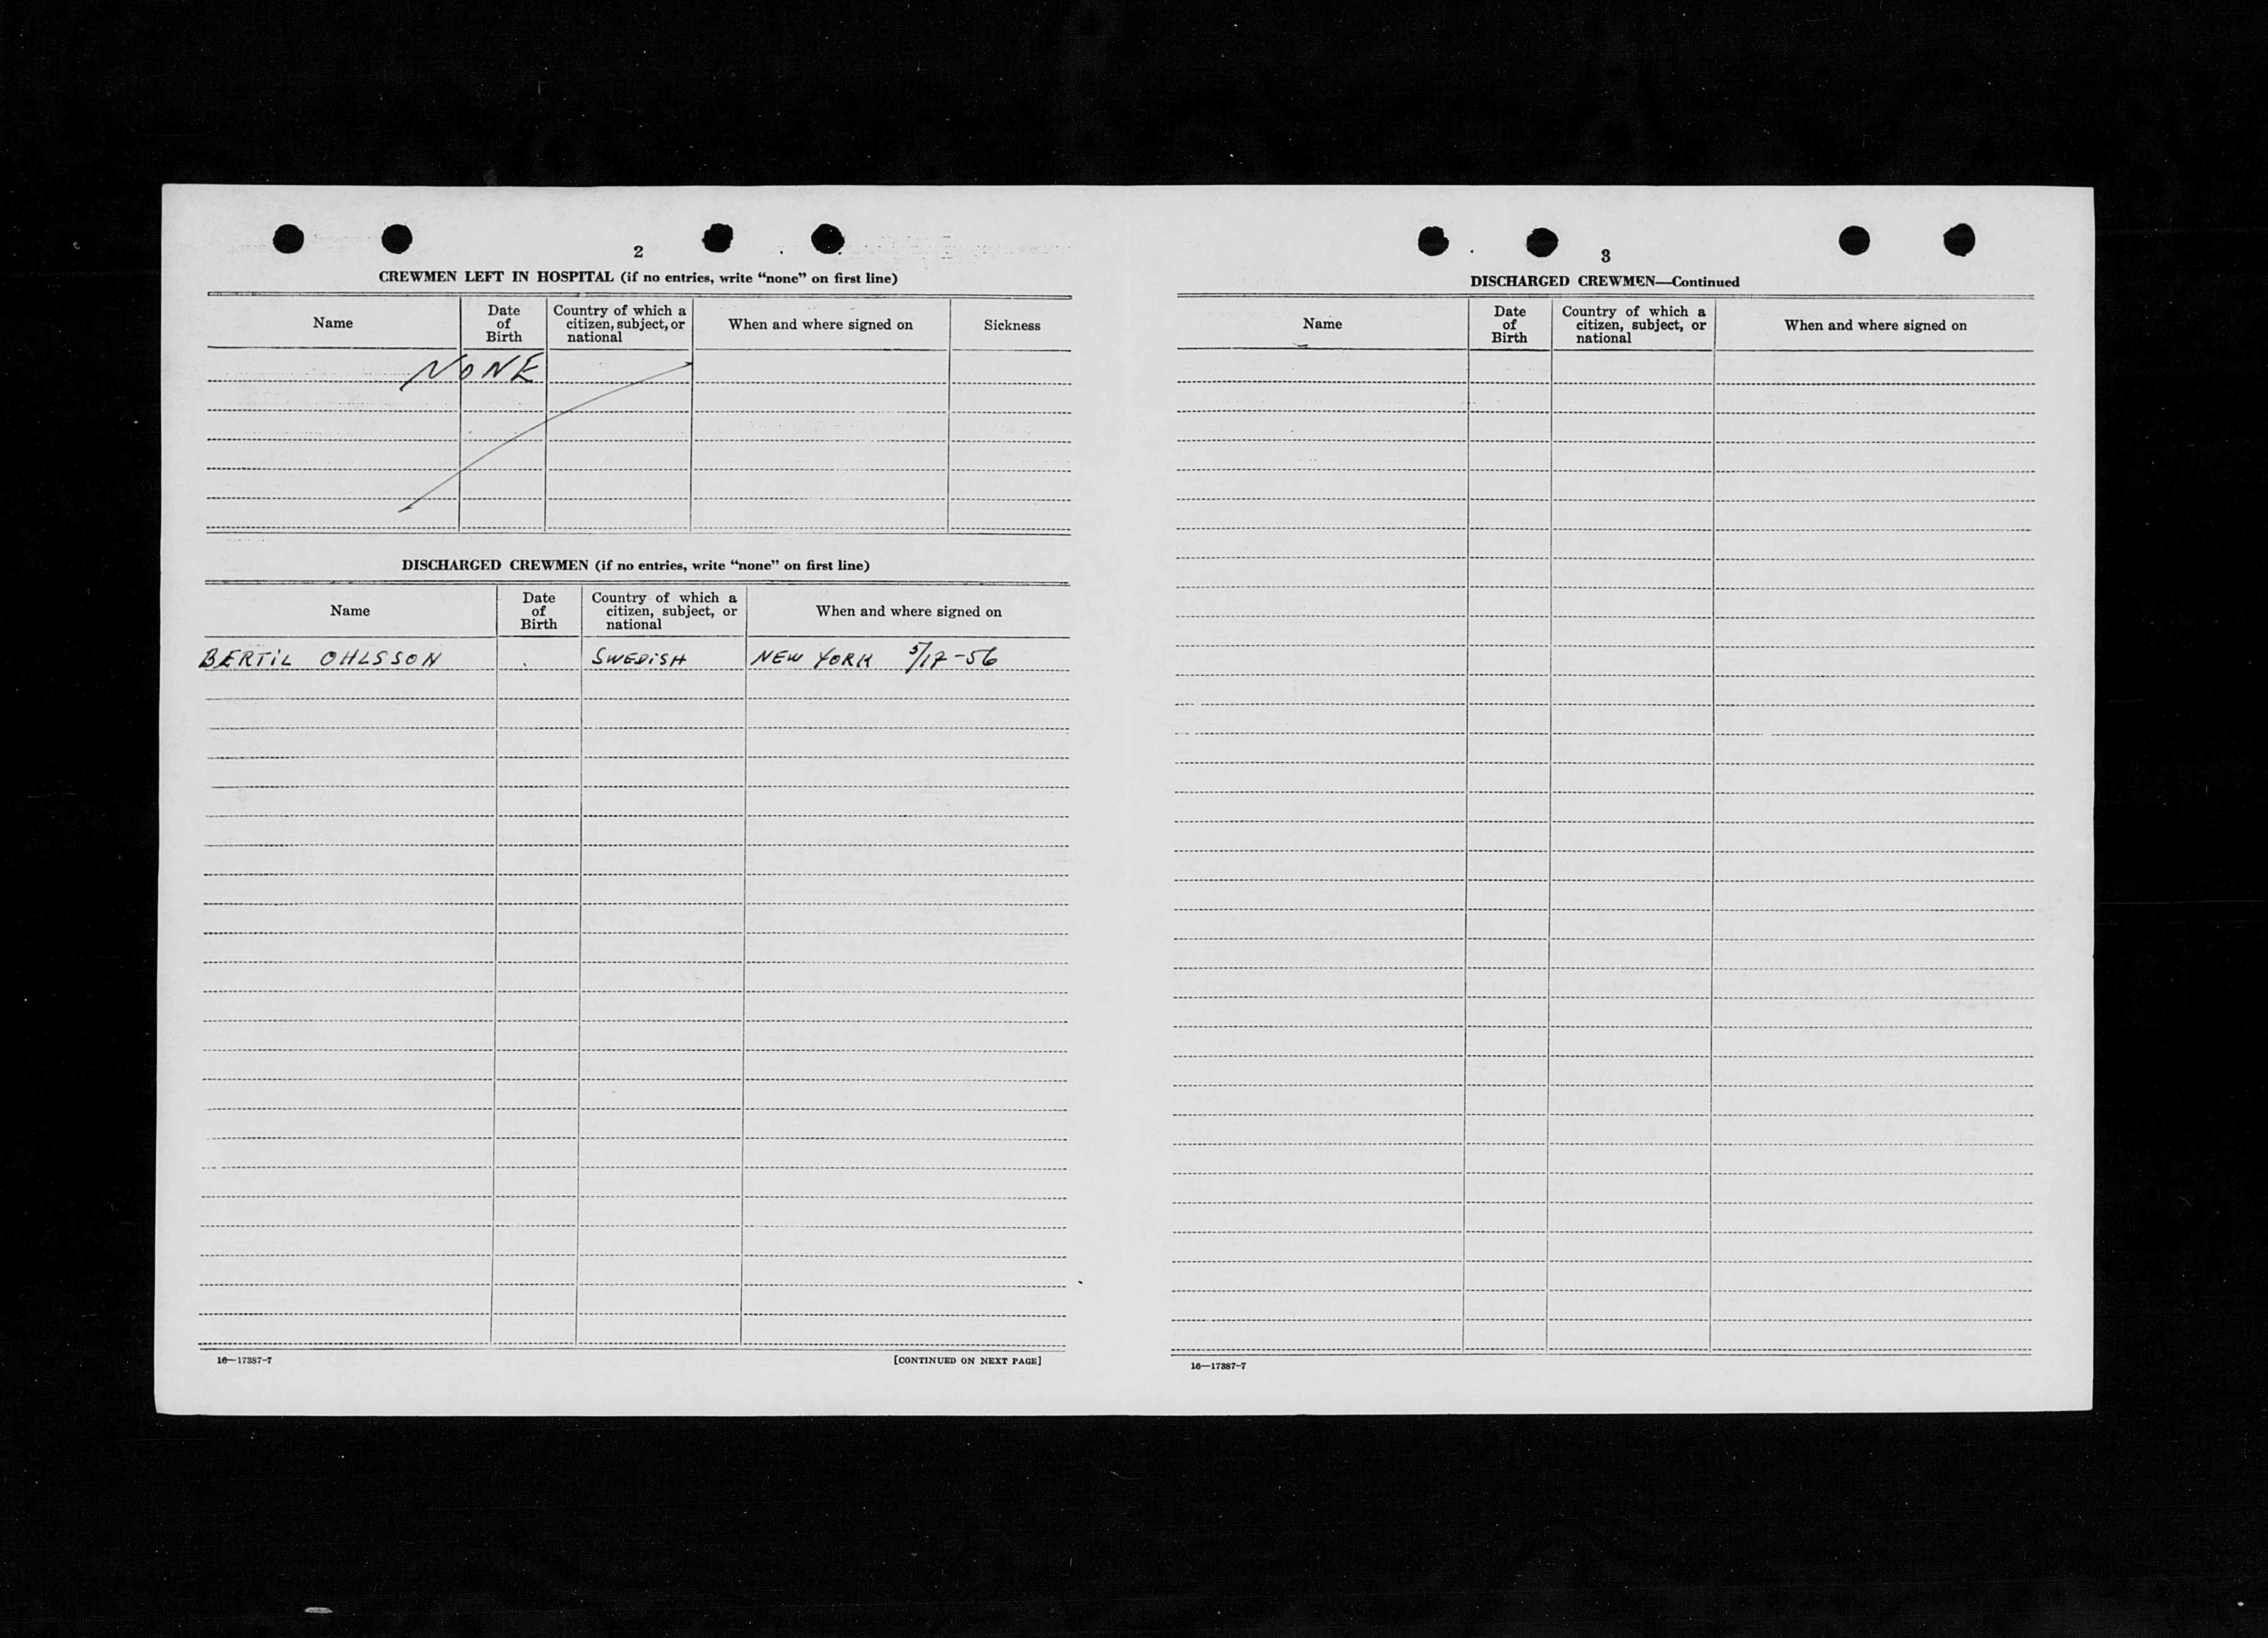 2
CREWMEN LEFT IN HOSPITAL (if no entries, write “none” on first line)
Name
Date of Birth
Country of which a citizen, subject, or national
When and where signed on
Sickness
NONE
DISCHARGED CREWMEN (if no entries, write “none” on first line)
Name
Date of Birth
Country of which a citizen, subject, or national
When and where signed on
BERTIL OHLSSON SWEDISH NEW YORK 5/17-56
16—17387-7 [CONTINUED ON NEXT PAGE]
3
DISCHARGED CREWMEN—Continued
Name
Date of Birth
Country of which a citizen, subject, or national
When and where signed on
16—17387-7